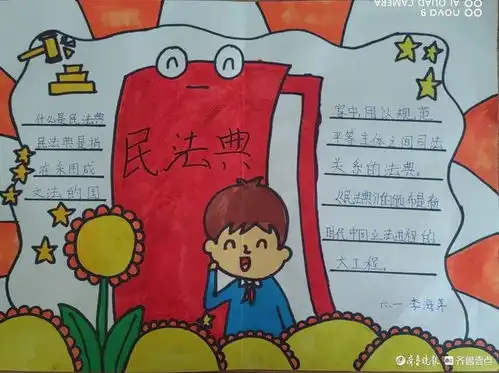 nova 9
AI QUAD CAMERA
民法典
什么是民法典
民法典是指
在采用成
文法的国
家中,用以规范
平等主体之间司法
关系的法典。
《民法典》的颁布是新
时代中国立法进程的
大工程。
六.一 李海萍
齐鲁晚报 齐鲁壹点